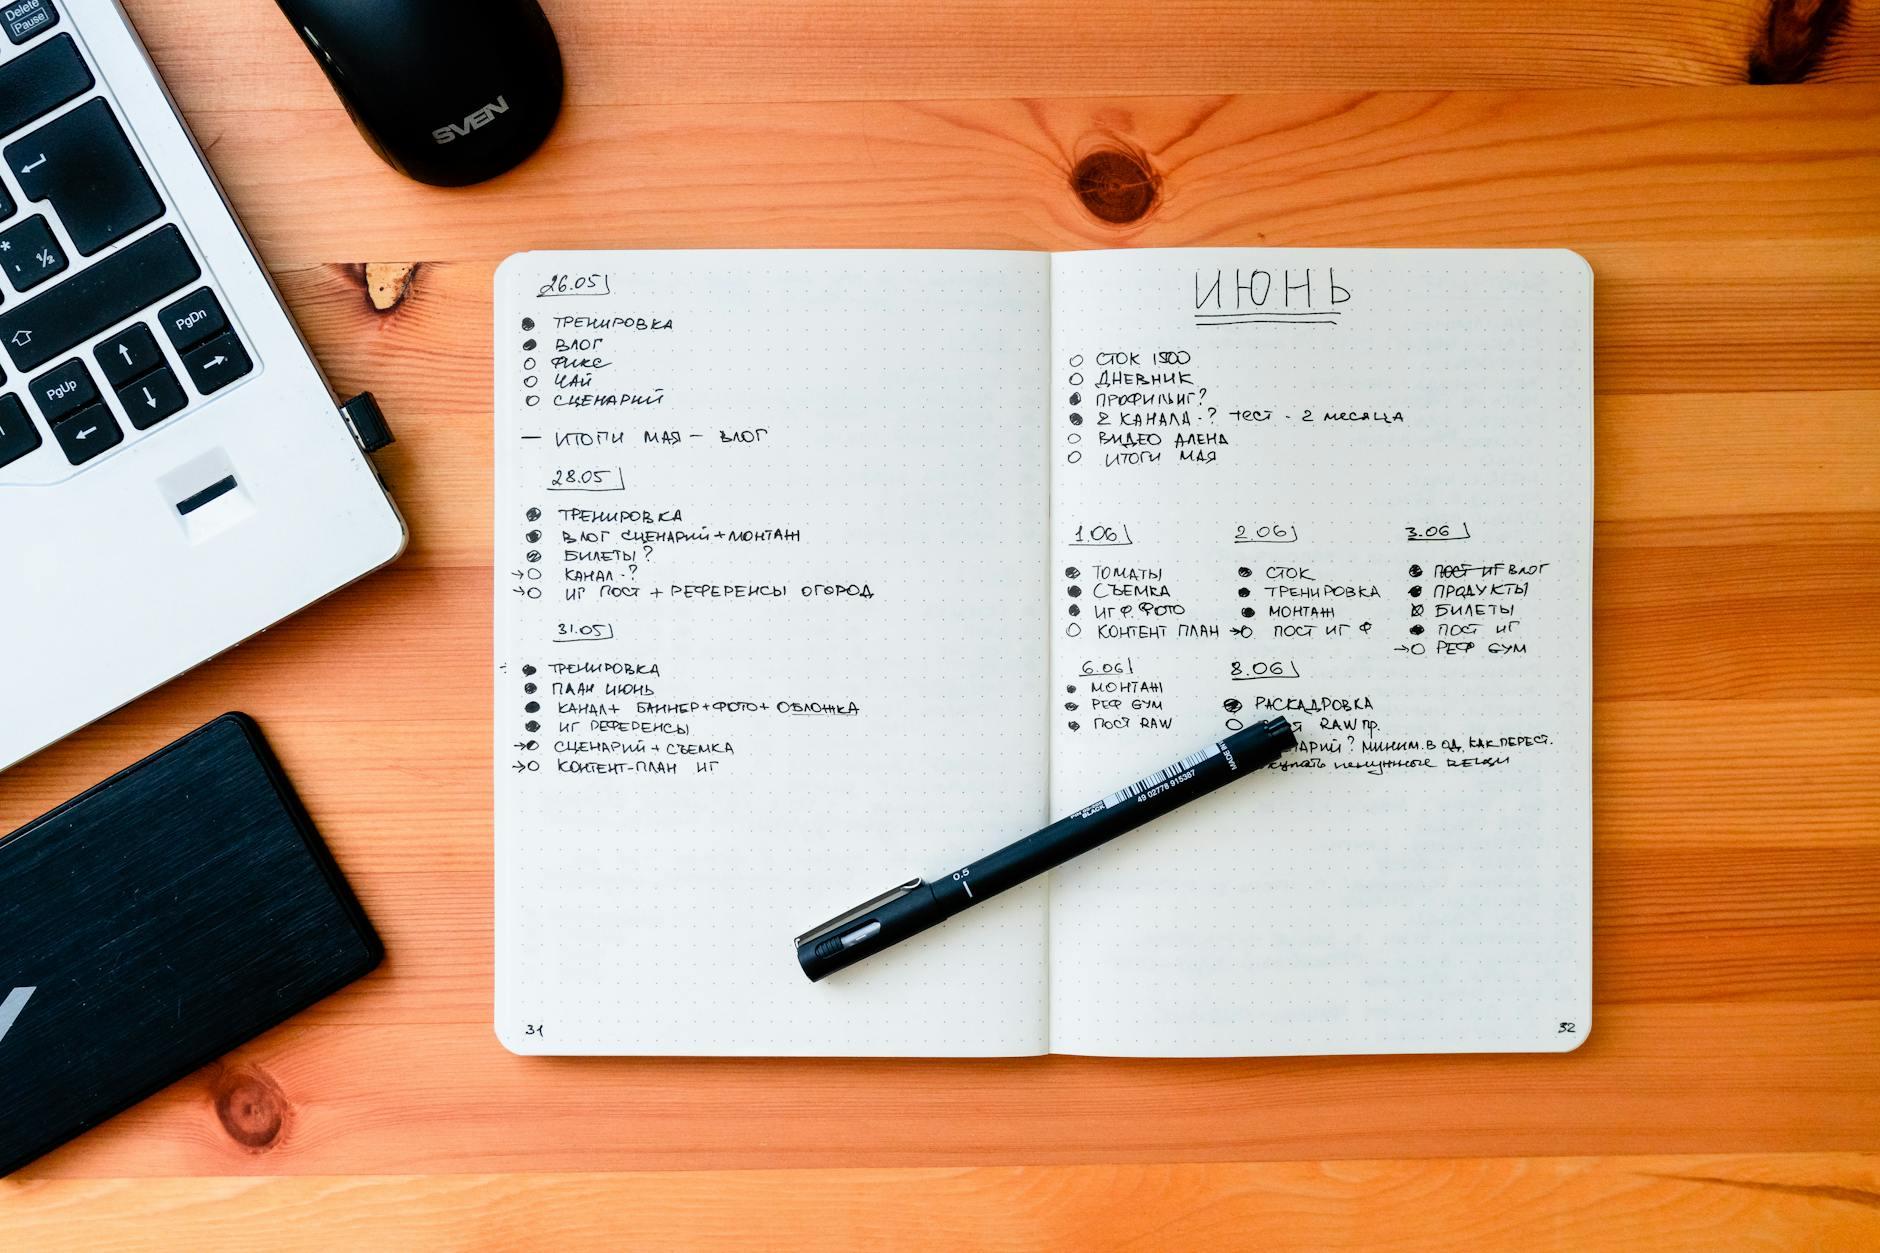 Delete
Pause
* ½
PgDn
PgUp
SVEN
26.05
ТРЕНИРОВКА
ВЛОГ
ФИКС
ЧАЙ
СЦЕНАРИЙ
— ИТОГИ МАЯ — ВЛОГ
28.05
ТРЕНИРОВКА
ВЛОГ СЦЕНАРИЙ + МОНТАЖ
БИЛЕТЫ?
→ КАНАЛ - ?
→ ИГ ПОСТ + РЕФЕРЕНСЫ ОГОРОД
31.05
ТРЕНИРОВКА
ПЛАН ИЮНЬ
КАНАЛ + БАННЕР + ФОТО + ОБЛОЖКА
ИГ РЕФЕРЕНСЫ
→ СЦЕНАРИЙ + СЪЕМКА
→ КОНТЕНТ-ПЛАН ИГ
31
ИЮНЬ
СТОК 1500
ДНЕВНИК
ПРОФИЛЬ ИГ?
2 КАНАЛА - ? ТЕСТ - 2 месяца
ВИДЕО АЛЕНА
ИТОГИ МАЯ
1.06
ТОМАТЫ
СЪЕМКА
ИГ Ф. ФОТО
КОНТЕНТ ПЛАН
2.06
СТОК
ТРЕНИРОВКА
МОНТАЖ
→ ПОСТ ИГ Ф
3.06
ПОСТ ИГ ВЛОГ
ПРОДУКТЫ
БИЛЕТЫ
ПОСТ ИГ
→ РЕФ GYM
6.06
МОНТАЖ
РЕФ GYM
ПОСТ RAW
8.06
РАСКАДРОВКА
RAW пр.
? МИНИМ. В ОД. КАК ПЕРЕСТ.
ненужные вещи
MADE IN
49 02778 915387
BLACK
0.5
32